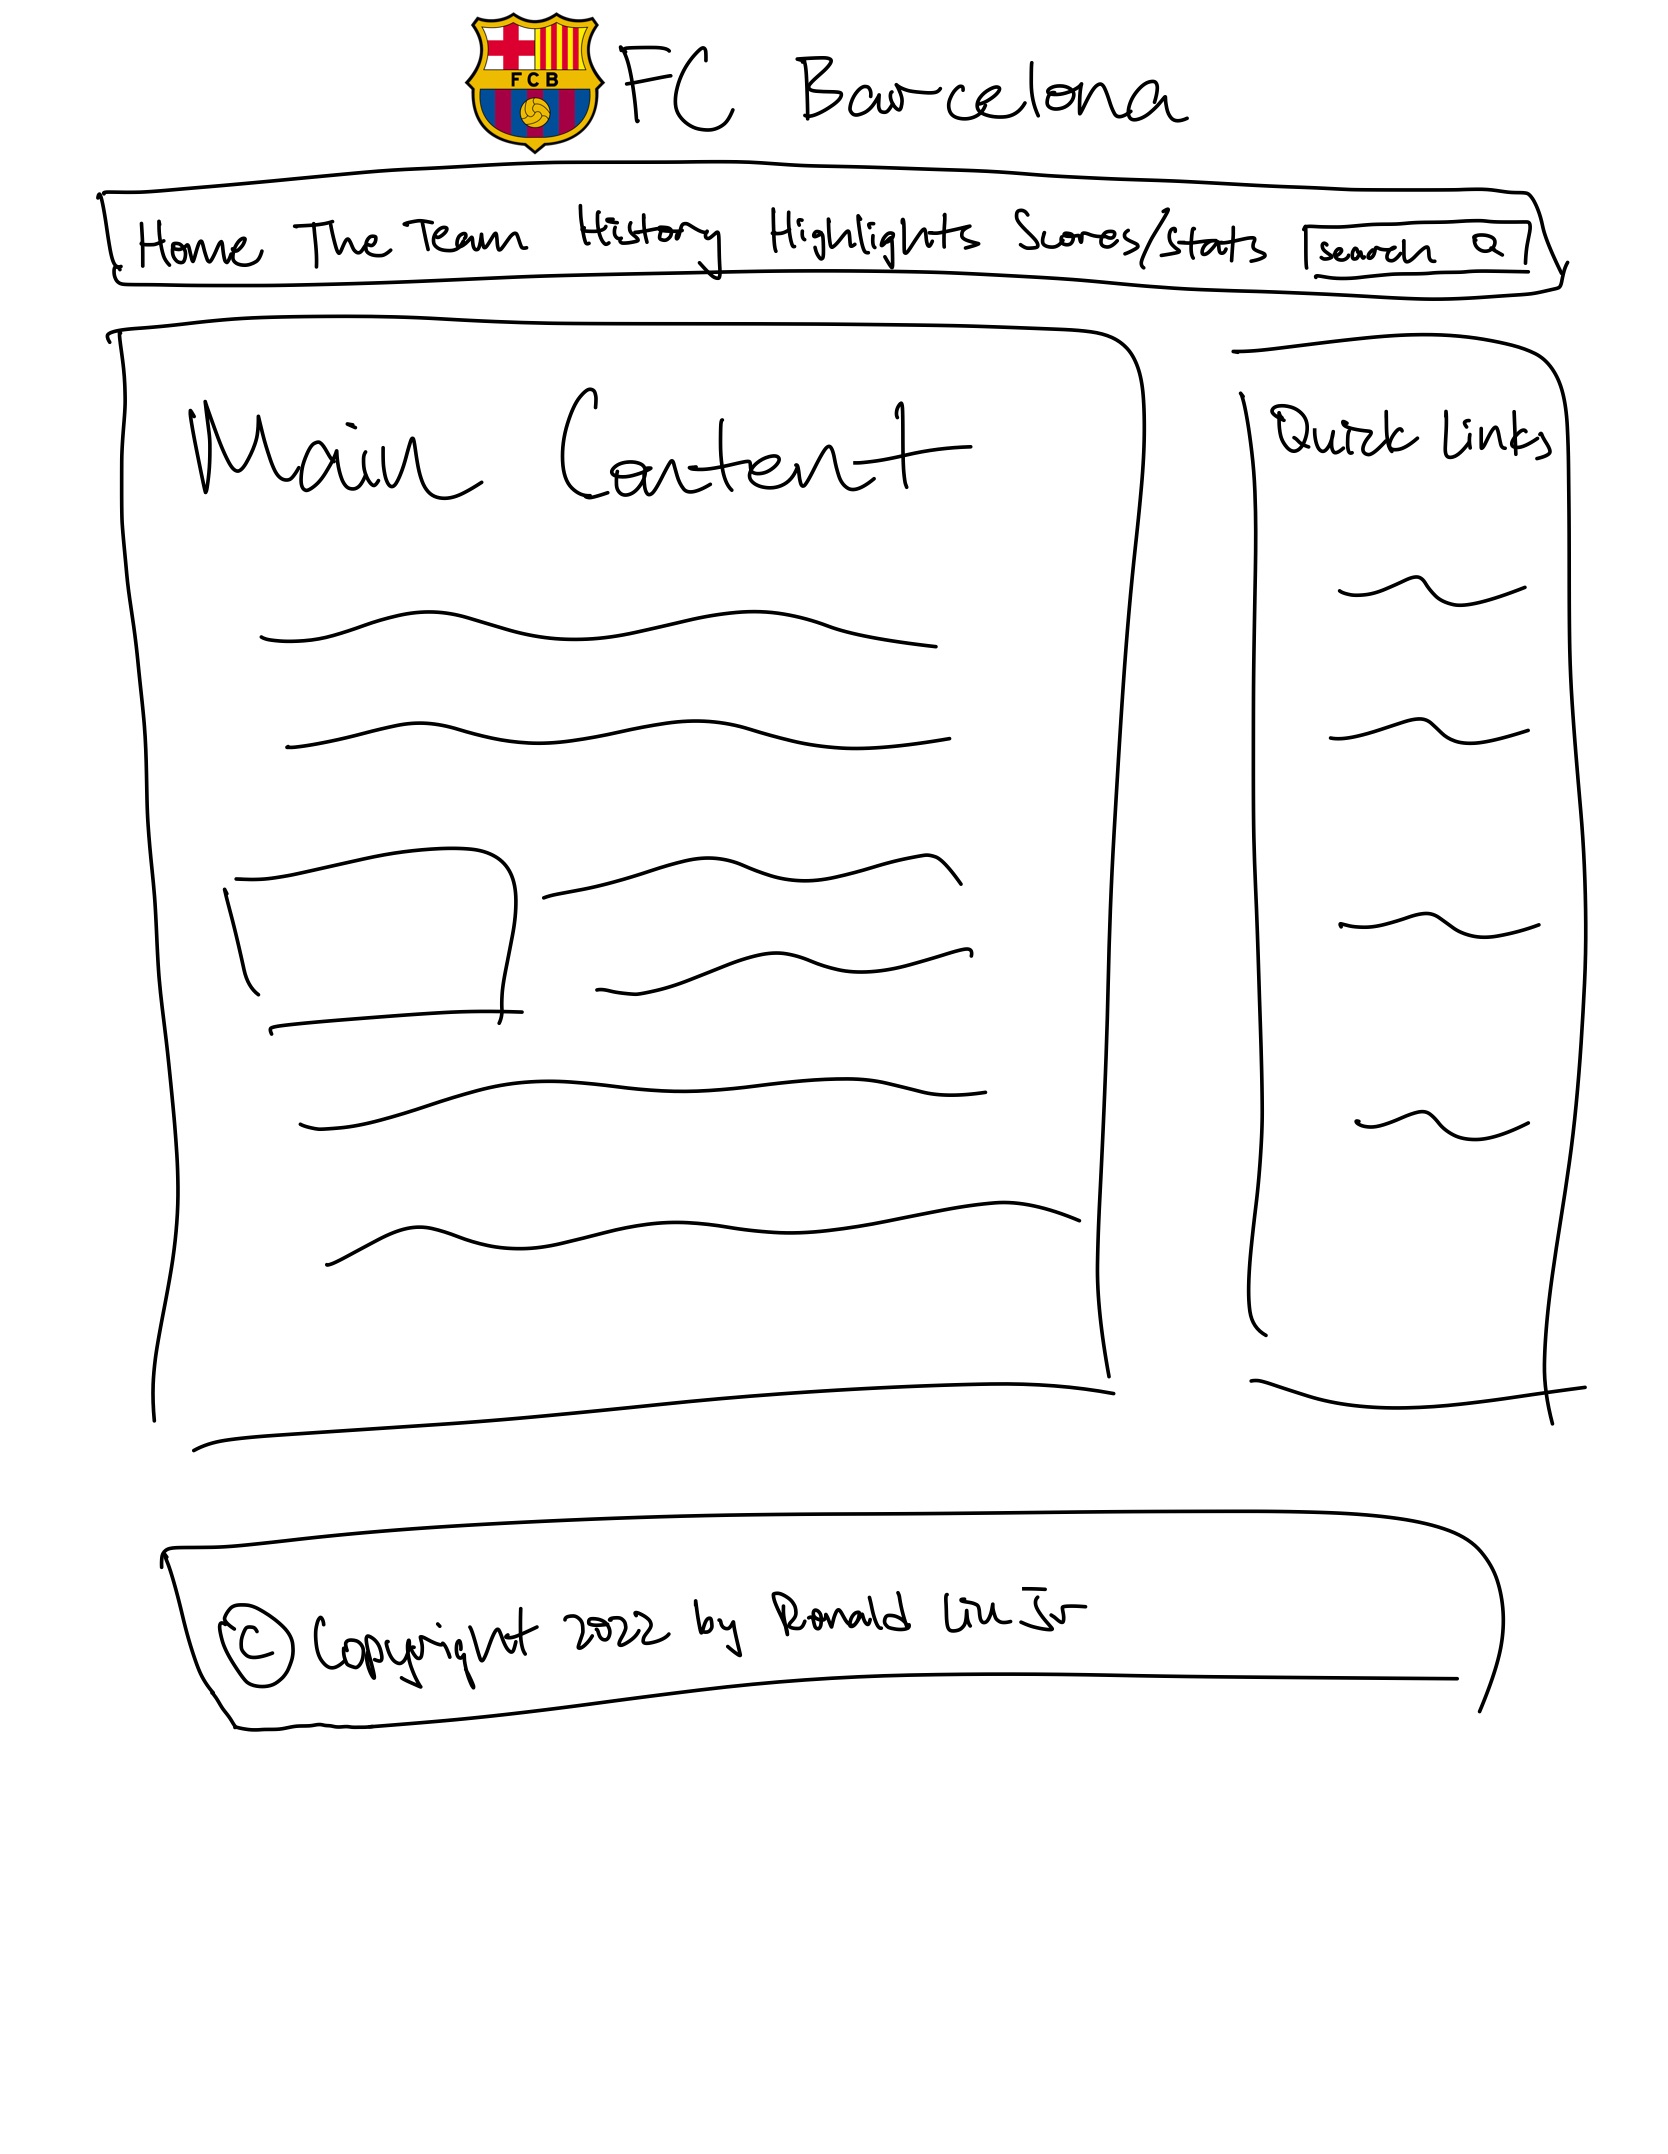 FCB
FC Barcelona
Home The Team History Highlights Scores/stats search
Main Content
Quick Links
© Copyright 2022 by Ronald Liu Jr